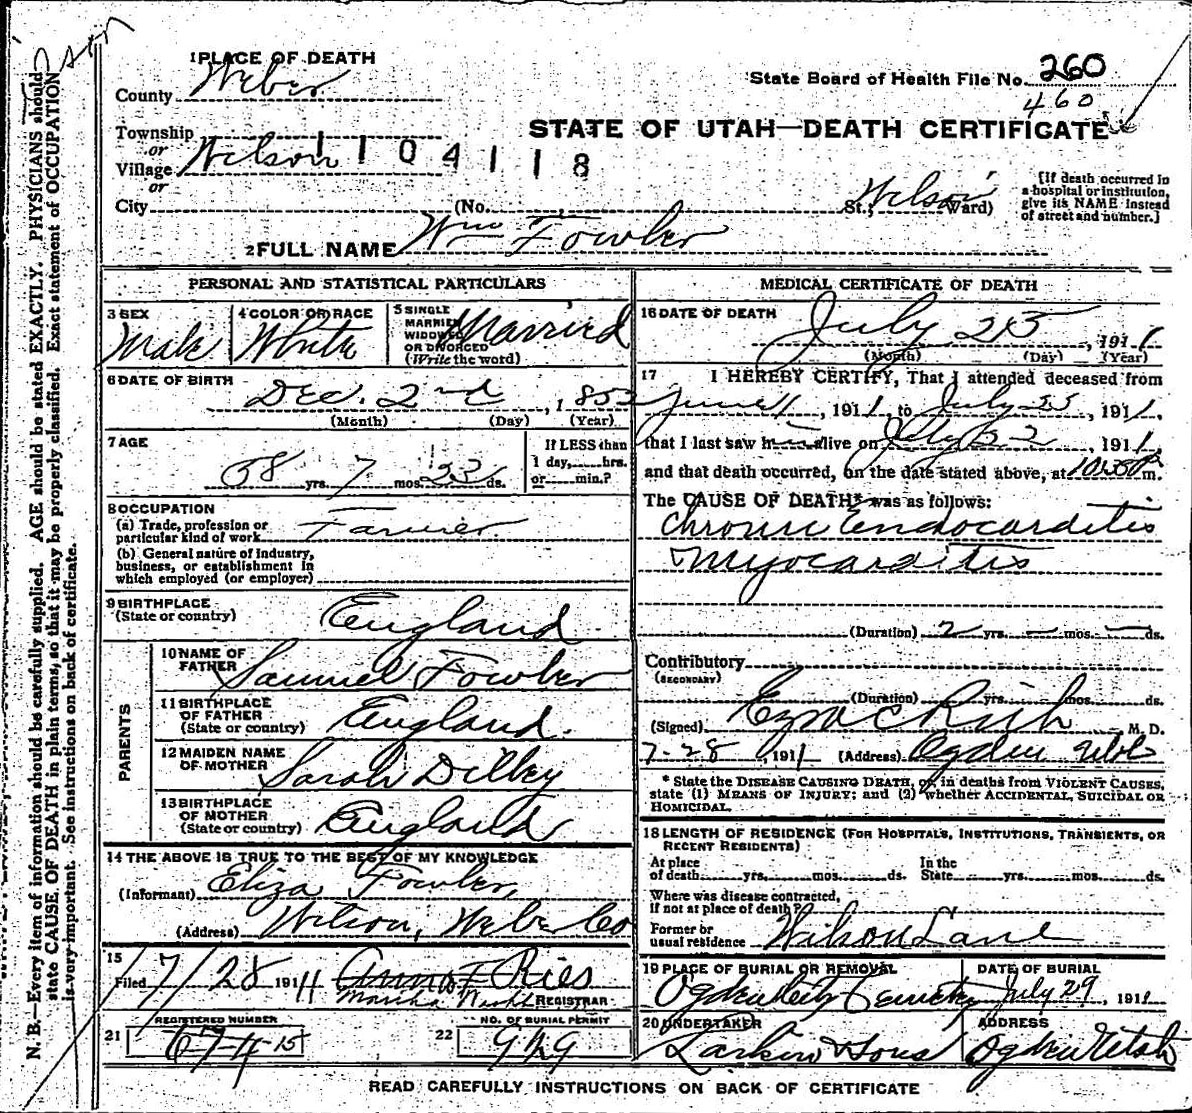 1 PLACE OF DEATH
County Weber
State Board of Health File No. 260
460
STATE OF UTAH—DEATH CERTIFICATE
Township
or
Village Wilson 1 1 0 4 1 1 8
or
City (No. St., Wilson Ward)
[If death occurred in a hospital or institution, give its NAME instead of street and number.]
2 FULL NAME Wm Fowler
PERSONAL AND STATISTICAL PARTICULARS
3 SEX Male
4 COLOR OR RACE White
5 SINGLE MARRIED WIDOWED OR DIVORCED (Write the word) Married
6 DATE OF BIRTH Dec. 2nd, 1852
(Month) (Day) (Year)
7 AGE 58 yrs. 7 mos. 23 ds.
If LESS than 1 day, hrs. or min.?
8 OCCUPATION
(a) Trade, profession or particular kind of work Farmer
(b) General nature of industry, business, or establishment in which employed (or employer)
9 BIRTHPLACE (State or country) England
PARENTS
10 NAME OF FATHER Samuel Fowler
11 BIRTHPLACE OF FATHER (State or country) England.
12 MAIDEN NAME OF MOTHER Sarah Dilley
13 BIRTHPLACE OF MOTHER (State or country) England
14 THE ABOVE IS TRUE TO THE BEST OF MY KNOWLEDGE
(Informant) Eliza Fowler,
(Address) Wilson, Weber Co
15 Filed 7/28 1911 Ries
REGISTRAR
21 REGISTERED NUMBER
22 NO. OF BURIAL PERMIT 929
MEDICAL CERTIFICATE OF DEATH
16 DATE OF DEATH July 25, 1911
(Month) (Day) (Year)
17 I HEREBY CERTIFY, That I attended deceased from
June 1, 1911, to July 25, 1911,
that I last saw h alive on July 22, 1911
and that death occurred, on the date stated above, at m.
The CAUSE OF DEATH* was as follows:
Chronic Endocarditis
Myocarditis
(Duration) 2 yrs. — mos. — ds.
Contributory
(SECONDARY)
(Duration) yrs. mos. ds.
(Signed) Ezra C Rich M. D.
7-28, 1911 (Address) Ogden Utah
* State the DISEASE CAUSING DEATH, or, in deaths from VIOLENT CAUSES, state (1) MEANS OF INJURY; and (2) whether ACCIDENTAL, SUICIDAL OR HOMICIDAL.
18 LENGTH OF RESIDENCE (FOR HOSPITALS, INSTITUTIONS, TRANSIENTS, OR RECENT RESIDENTS)
At place of death yrs. mos. ds. In the State yrs. mos. ds.
Where was disease contracted, if not at place of death?
Former or usual residence Wilson Lane
19 PLACE OF BURIAL OR REMOVAL Ogden City Cemetery
DATE OF BURIAL July 29, 1911
20 UNDERTAKER Larkin & Sons
ADDRESS Ogden Utah
READ CAREFULLY INSTRUCTIONS ON BACK OF CERTIFICATE
N. B.—Every item of information should be carefully supplied. AGE should be stated EXACTLY. PHYSICIANS should
state CAUSE OF DEATH in plain terms, so that it may be properly classified. Exact statement of OCCUPATION
is very important. See instructions on back of certificate.